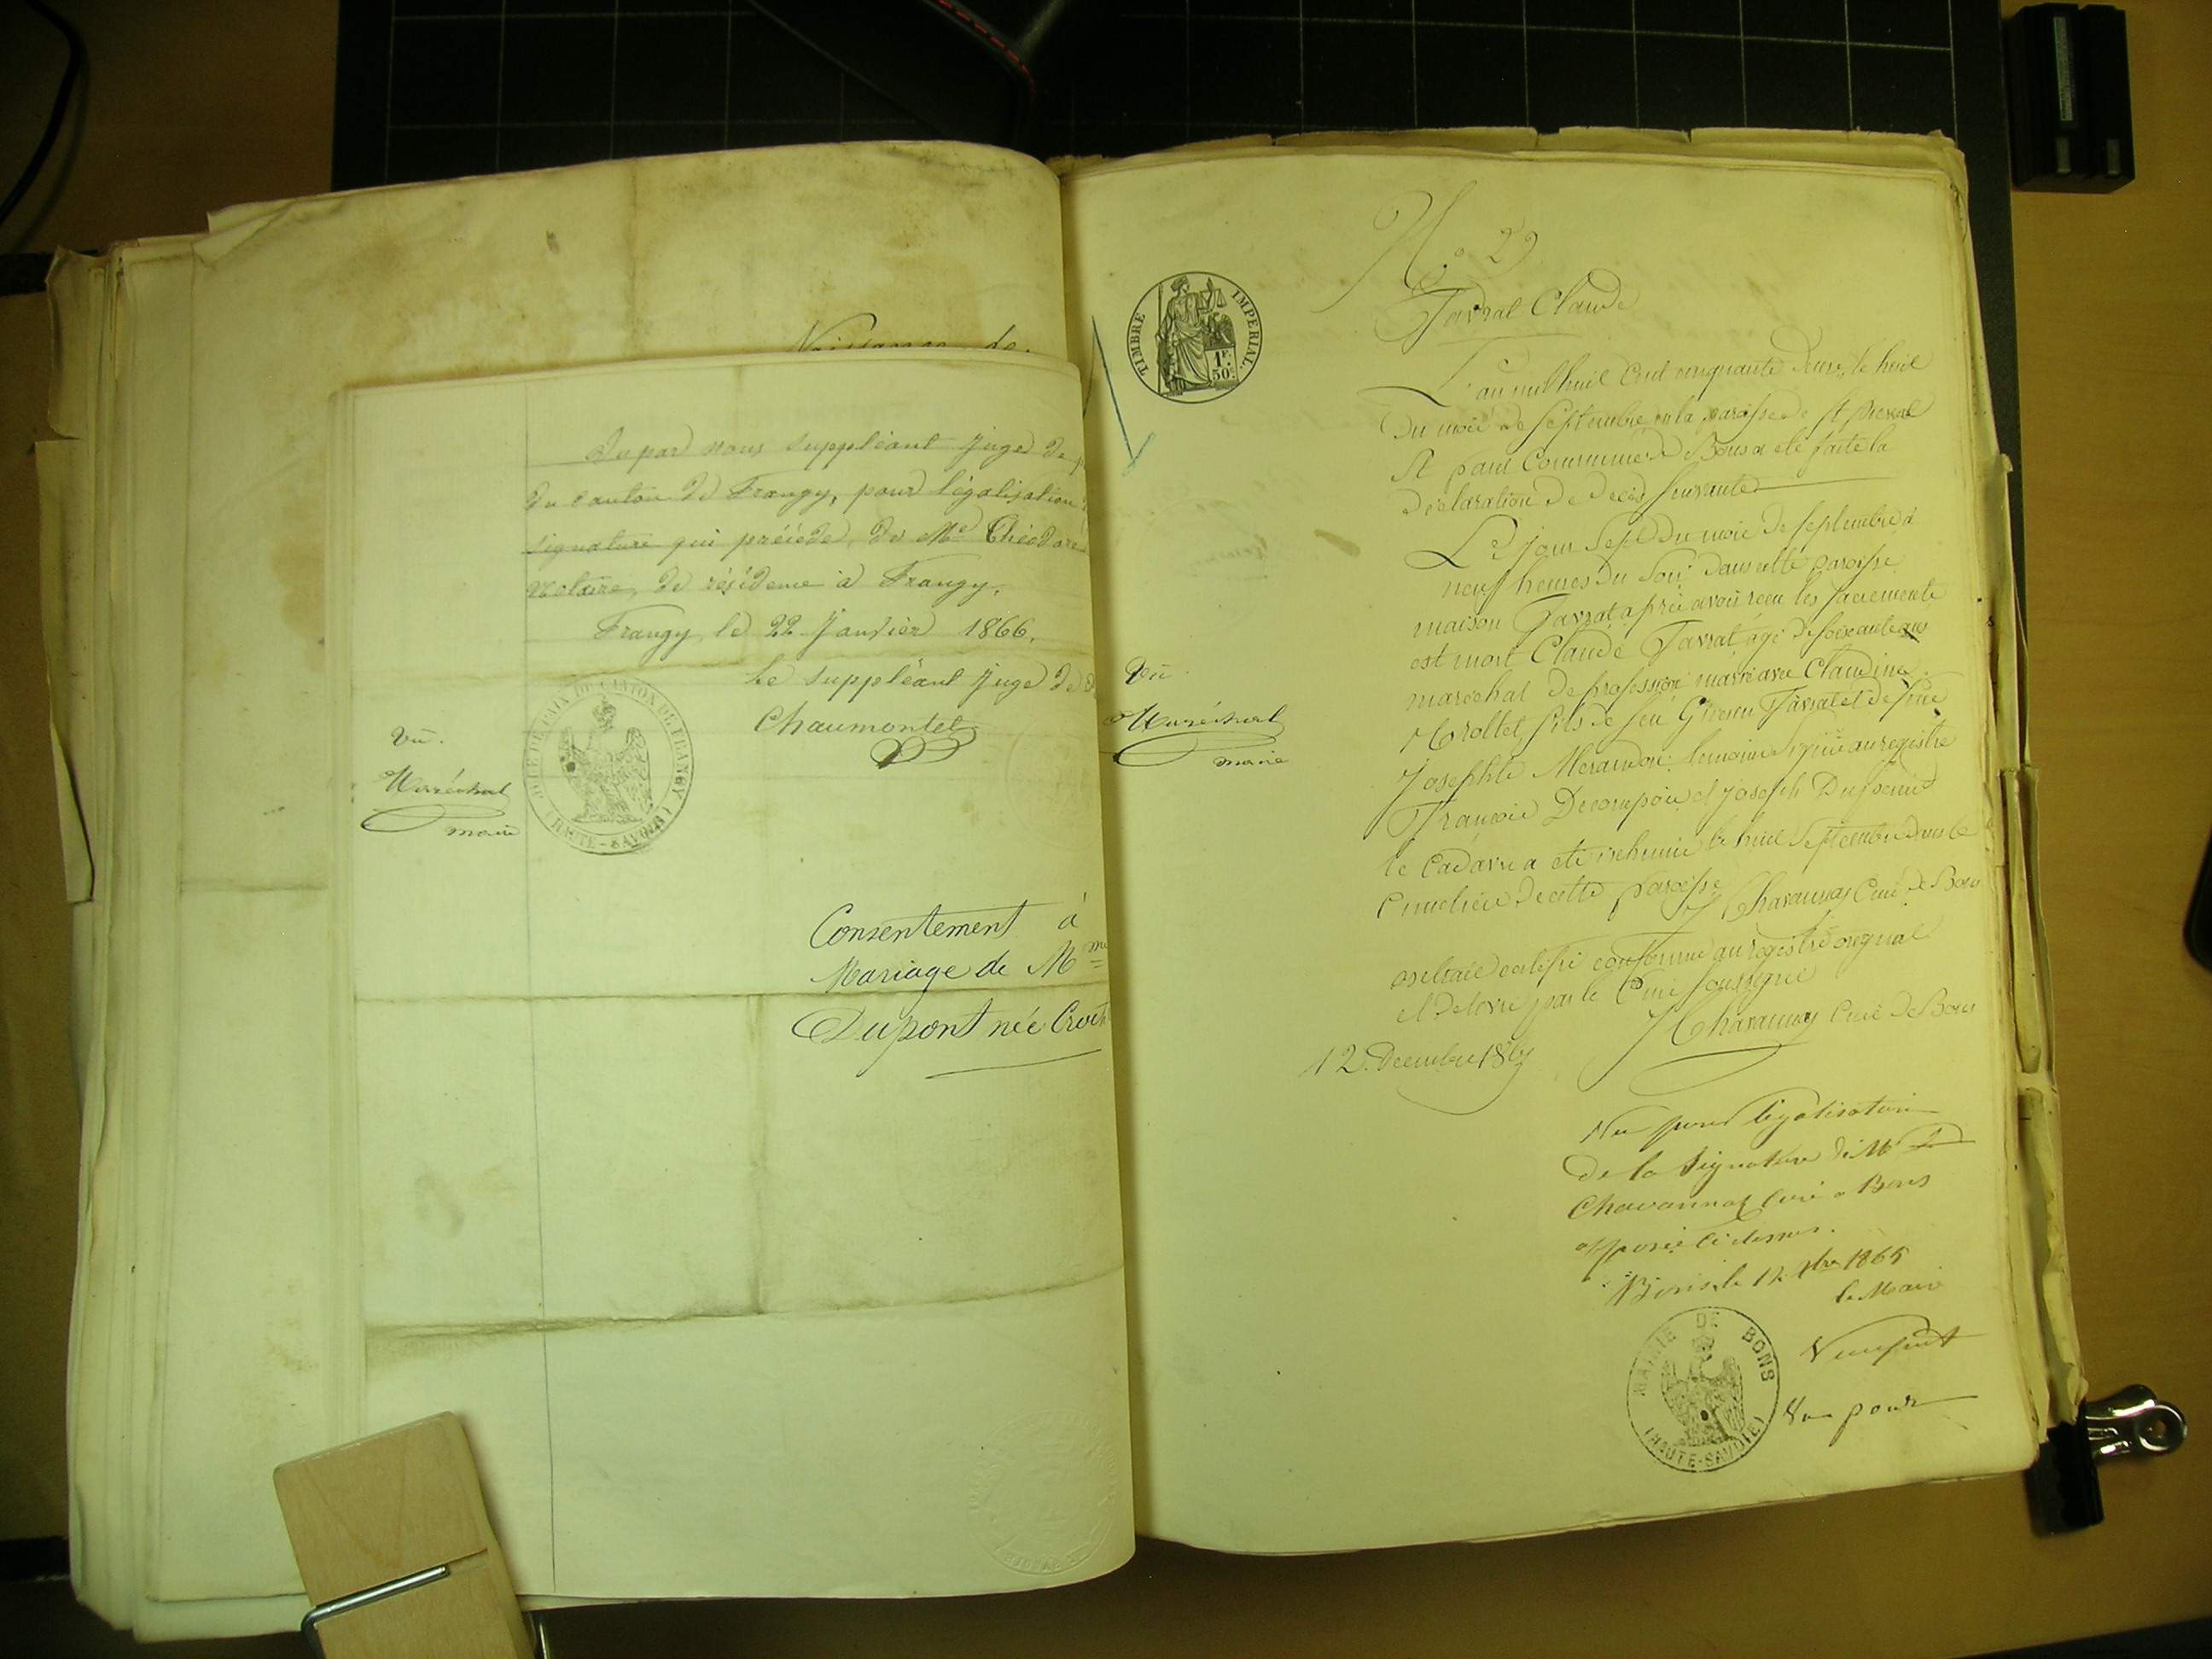 Naissance de
Vu par nous suppléant Juge de
du canton de Frangy, pour légalisation
signature qui précéde, de Me Théodore
notaire, de résidence à Frangy.
Frangy, le 22 Janvier 1866.
Le suppléant Juge de
Chaumontet
JUGE DE PAIX DU CANTON DE FRANGY
(HAUTE-SAVOIE)
Vu.
Maréchal
maire
Consentement à
Mariage de Mme
Dupont née
TIMBRE IMPERIAL
1F.
50c.
Vu.
Maréchal
maire
No 29
Favrat Claude
L'an mil huit cent cinquante deux, le huit
du mois de septembre en la paroisse de St pierre
St paul Commune de Bons a eté faite la
declaration de decès suivante
Le jour sept du mois de septembre à
neuf heures du soir dans cette paroisse
maison Favrat après avoir recu les sacrements
est mort Claude Favrat âgé de soixante ans
maréchal de profession marié avec Claudine
fils de feu Favrat et de feue
Josephte temoins signés au registre
François et Joseph
le cadavre a eté inhumé le huit septembre dans le
cimetiere de cette paroisse J Chavannaz Curé de Bons
extrait certifié conforme au registre original
et delivré par le Curé soussigné
J Chavannaz Curé de Bons
12. Decembre 1865
Vu pour légalisation
de la signature de Mr
Chavannaz Curé à Bons
apposée ci dessus.
Bons, le 12 Xbre 1865
le Maire
MAIRIE DE BONS
(HAUTE-SAVOIE)
Vu pour